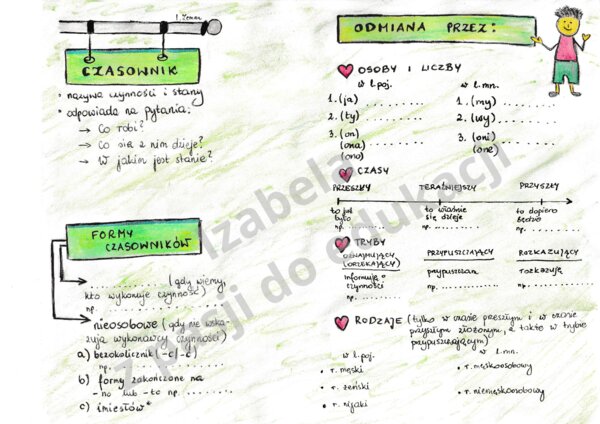 I. Zeman
CZASOWNIK
• nazywa czynności i stany
• odpowiada na pytania:
→ Co robi?
→ Co się z nim dzieje?
→ W jakim jest stanie?
FORMY
CZASOWNIKÓW
. . . . . . . . . . . (gdy wiemy,
kto wykonuje czynność)
np. . . . . . . . . . . .
nieosobowe (gdy nie wska-
zują wykonawcy czynności)
a) bezokolicznik (-c/-ć)
np. . . . . . . . . . .
b) formy zakończone na
-no lub -to np. . . . . . . .
c) imiesłów*
ODMIANA PRZEZ:
OSOBY I LICZBY
w l.poj.
1. (ja) . . . . . . . . .
2. (ty) . . . . . . . . .
3. (on) . . . . . . . . .
(ona)
(ono)
w l.mn.
1. (my) . . . . . . . . .
2. (wy) . . . . . . . . .
3. (oni) . . . . . . . . .
(one)
CZASY
PRZESZŁY TERAŹNIEJSZY PRZYSZŁY
to już było
np. . . . . . . . .
to właśnie się dzieje
np. . . . . . . . .
to dopiero będzie
np. . . . . . . . .
TRYBY
OZNAJMUJĄCY (ORZEKAJĄCY)
informują o czynności
np. . . . . . . . .
PRZYPUSZCZAJĄCY
przypuszczam
np. . . . . . . . .
ROZKAZUJĄCY
rozkazuję
np. . . . . . . . .
RODZAJE (tylko w czasie przeszłym i w czasie
przyszłym złożonym, a także w trybie
przypuszczającym)
w l.poj.
• r. męski
• r. żeński
• r. nijaki
w l. mn.
• r. męskoosobowy
• r. niemęskoosobowy
Izabela
Z pasji do edukacji